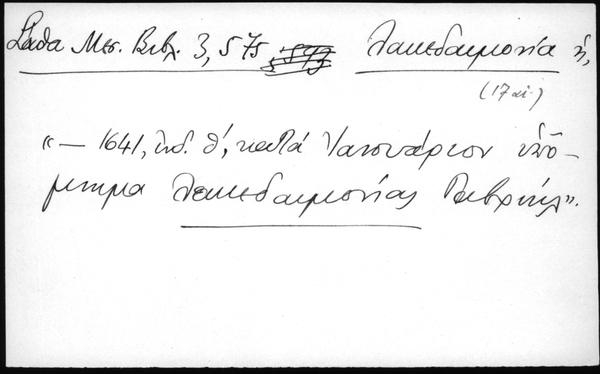 Σάθα Μεσ. Βιβλ. 3, 575 Λακεδαιμονία ἡ,
(17 αἰ.)
«— 1641, ἰνδ. θ', κατά Ἰανουάριον ὑπό-
μνημα Λακεδαιμονίας Γαβριήλ».